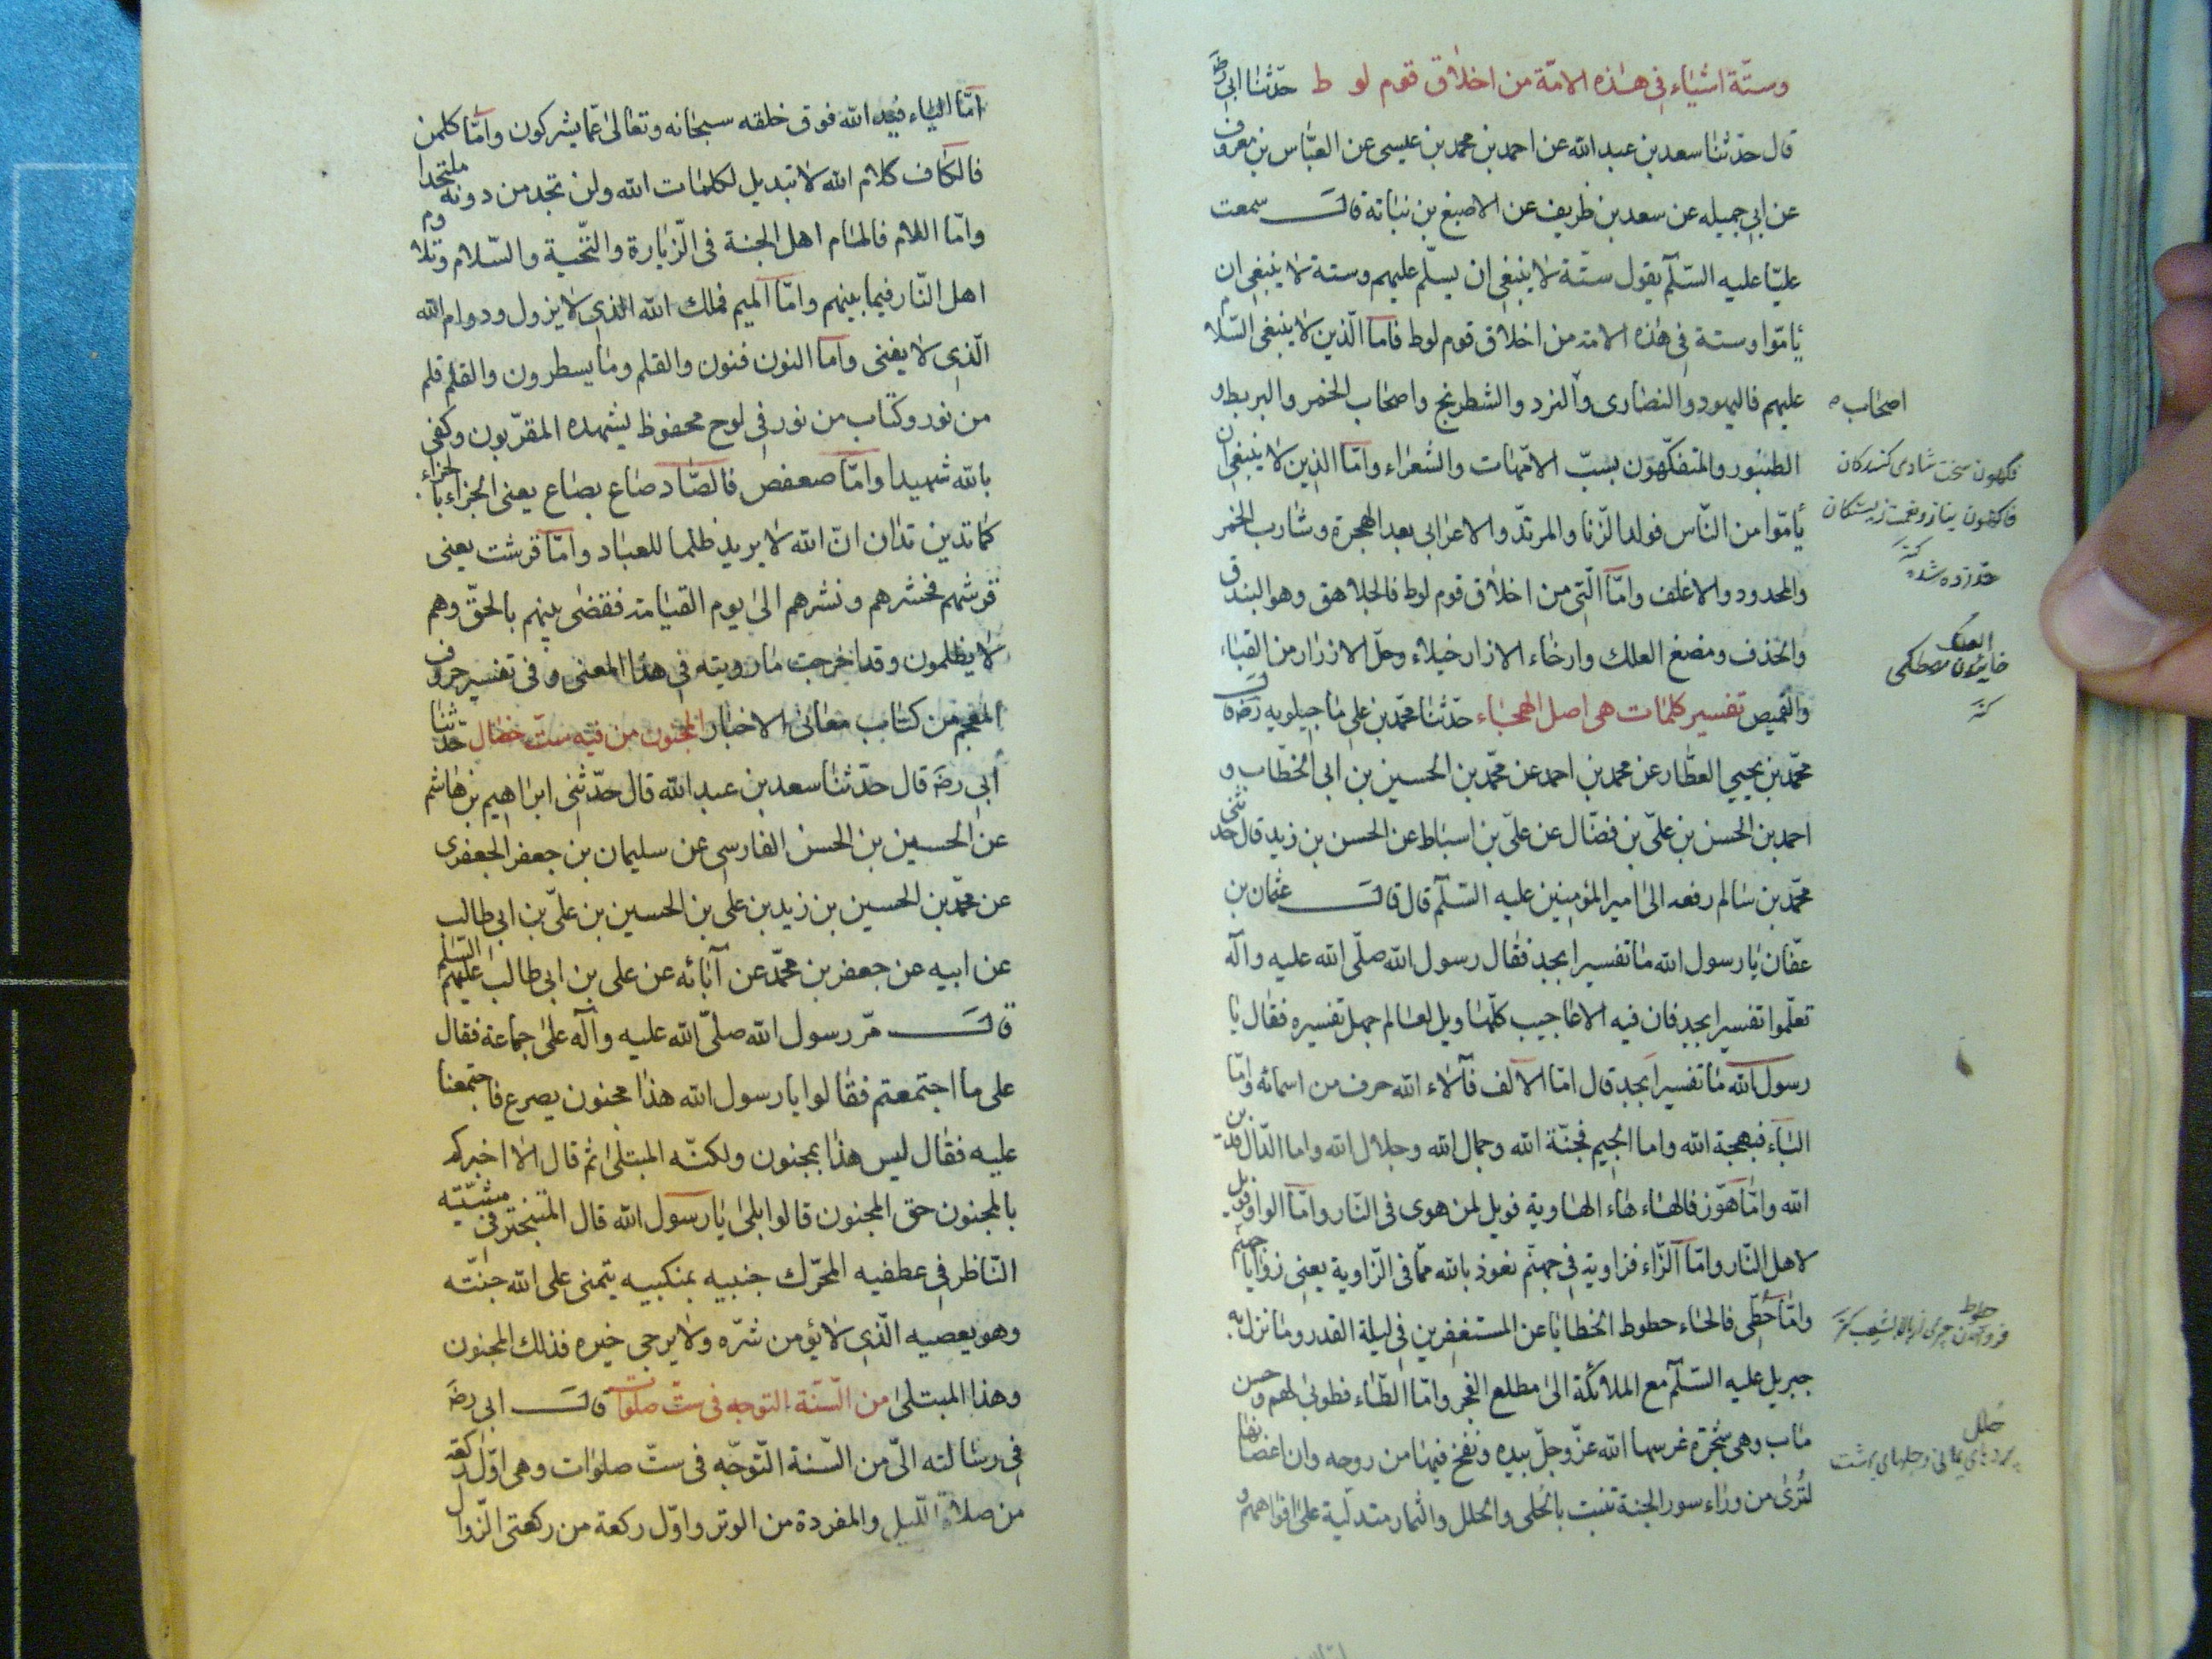 وستّة اشياء في هذه الامّة من اخلاق قوم لوط حدّثنا ابي رضَ
قال حدّثنا سعد بن عبد الله عن احمد بن محمد بن عيسى عن العبّاس بن معروف
عن ابي جميله عن سعد بن ظريف عن الاصبغ بن نباتة قال سمعت
عليّا عليه السّلم يقول ستّة لا ينبغي ان يسلّم عليهم وستة لا ينبغي ان
يأمّوا وستة في هذه الامة من اخلاق قوم لوط فاما الّذين لا ينبغي السّلام
عليهم فاليهود والنصارى والنرد والشطرنج واصحاب الخمر والبربط و
اصحاب
الطنبور والمتفكّهون بسبّ الامّهات والشعراء وامّا الذين لا ينبغي ان
فكهون سخت شادى كنندكان
يأمّوا من النّاس فولد الزّنا والمرتدّ والاعرابي بعد الهجرة وشارب الخمر
فاكهون بناز ونعمت زيستكان
والمحدود والاغلف وامّا الّتي من اخلاق قوم لوط فالجلاهق وهو البندق
حد زده شده كنز
والخذف ومضغ العلك وارخاء الازار خيلاء وحلّ الازرار من القباء
العلك
والقميص تفسير كلمات هي اصل الهجاء حدّثنا محمّد بن علي ماجيلويه رضَ قال
محمّد بن يحيي العطّار عن محمد بن احمد عن محمّد بن الحسين بن ابي الخطّاب و
احمد بن الحسن بن عليّ بن فضّال عن عليّ بن اسباط عن الحسن بن زيد قال حدثني
محمّد بن سالم رفعه الى امير المؤمنين عليه السّلم قال قال عثمان بن
عفّان يا رسول الله ما تفسير ابجد فقال رسول الله صلّى الله عليه وآله
تعلّموا تفسير ابجد فان فيه الاعاجيب كلّها ويل لعالم جهل تفسيره فقال يا
رسول الله ما تفسير ابجد قال امّا الالف فآلاء الله حرف من اسمائه وامّا
الباء فبهجة الله واما الجيم فجنّة الله وجمال الله وجلال الله واما الدّال فدين
الله وامّا هوّز فالهاء هاء الهاوية فويل لمن هوى في النّار وامّا الواو فويل
لاهل النّار وامّا الزّاء فزاوية في جهنّم نعوذ بالله ممّا في الزّاوية يعني زوايا جهنم
وامّا حُطّي فالحاء حطوط الخطايا عن المستغفرين في ليلة القدر وما نزل به
جبريل عليه السّلم مع الملائكة الى مطلع الفجر وامّا الطّاء فطوبى لهم وحسن
ماب وهي شجرة غرسها الله عزّ وجلّ بيده ونفخ فيها من روحه وان اغصانها
حلل
لتُرى من وراء سور الجنة تنبت بالحُلى والحلل والثمار متدلّية على افواههم و
امّا الياء فيد الله فوق خلقه سبحانه وتعالى عمّا يشركون وامّا كلمن
فالكاف كلام الله لا تبديل لكلمات الله ولن تجد من دونه ملتحدا
وامّا اللام فالمام اهل الجنة في الزّيارة والتّحية والسّلام وتلاوم
اهل النّار فيما بينهم وامّا الميم فملك الله الّذي لا يزول ودوام الله
الّذي لا يفنى واما النون فنون والقلم وما يسطرون والقلم قلم
من نور وكتاب من نور في لوح محفوظ يشهده المقرّبون وكفى
بالله شهيدا وامّا صعفص فالصّاد صاع بصاع يعني الجزاء بالجزاء
كما تدين تدان انّ الله لا يريد ظلما للعباد وامّا قرشت يعني
قرشهم فحشرهم ونشرهم الى يوم القيامة فقضى بينهم بالحقّ وهم
لا يظلمون وقد اخرجت ما رويته في هذا المعنى وفي تفسير حروف
المعجم من كتاب معاني الاخبار المجنون من فيه ستّ خصال حدّثنا
ابي رضَ قال حدّثنا سعد بن عبد الله قال حدّثني ابراهيم بن هاشم
عن الحسين بن الحسن الفارسي عن سليمان بن جعفر الجعفرى
عن محمّد بن الحسين بن زيد بن علي بن الحسين بن عليّ بن ابي طالب
عن ابيه عن جعفر بن محمّد عن آبائه عن علي بن ابي طالب عليهم السّلم
قال مرّ رسول الله صلّى الله عليه وآله على جماعة فقال
على ما اجتمعتم فقالوا يا رسول الله هذا مجنون يصرع فاجتمعنا
عليه فقال ليس هذا بمجنون ولكنّه المبتلى ثم قال الا اخبركم
بالمجنون حق المجنون قالوا بلى يا رسول الله قال المتبختر في مشيته
النّاظر في عطفيه المحرّك جنبيه بمنكبيه يتمنى على الله جنّته
وهو يعصيه الّذي لا يؤمن شرّه ولا يرجى خيره فذلك المجنون
وهذا المبتلى من السّنّة التوجه في ستّ صلوات قال ابي رضَ
في رسالته الىّ من السّنة التّوجّه في ستّ صلوات وهي اوّل ركعة
من صلاة اللّيل والمفردة من الوتر واوّل ركعة من ركعتي الزّوال